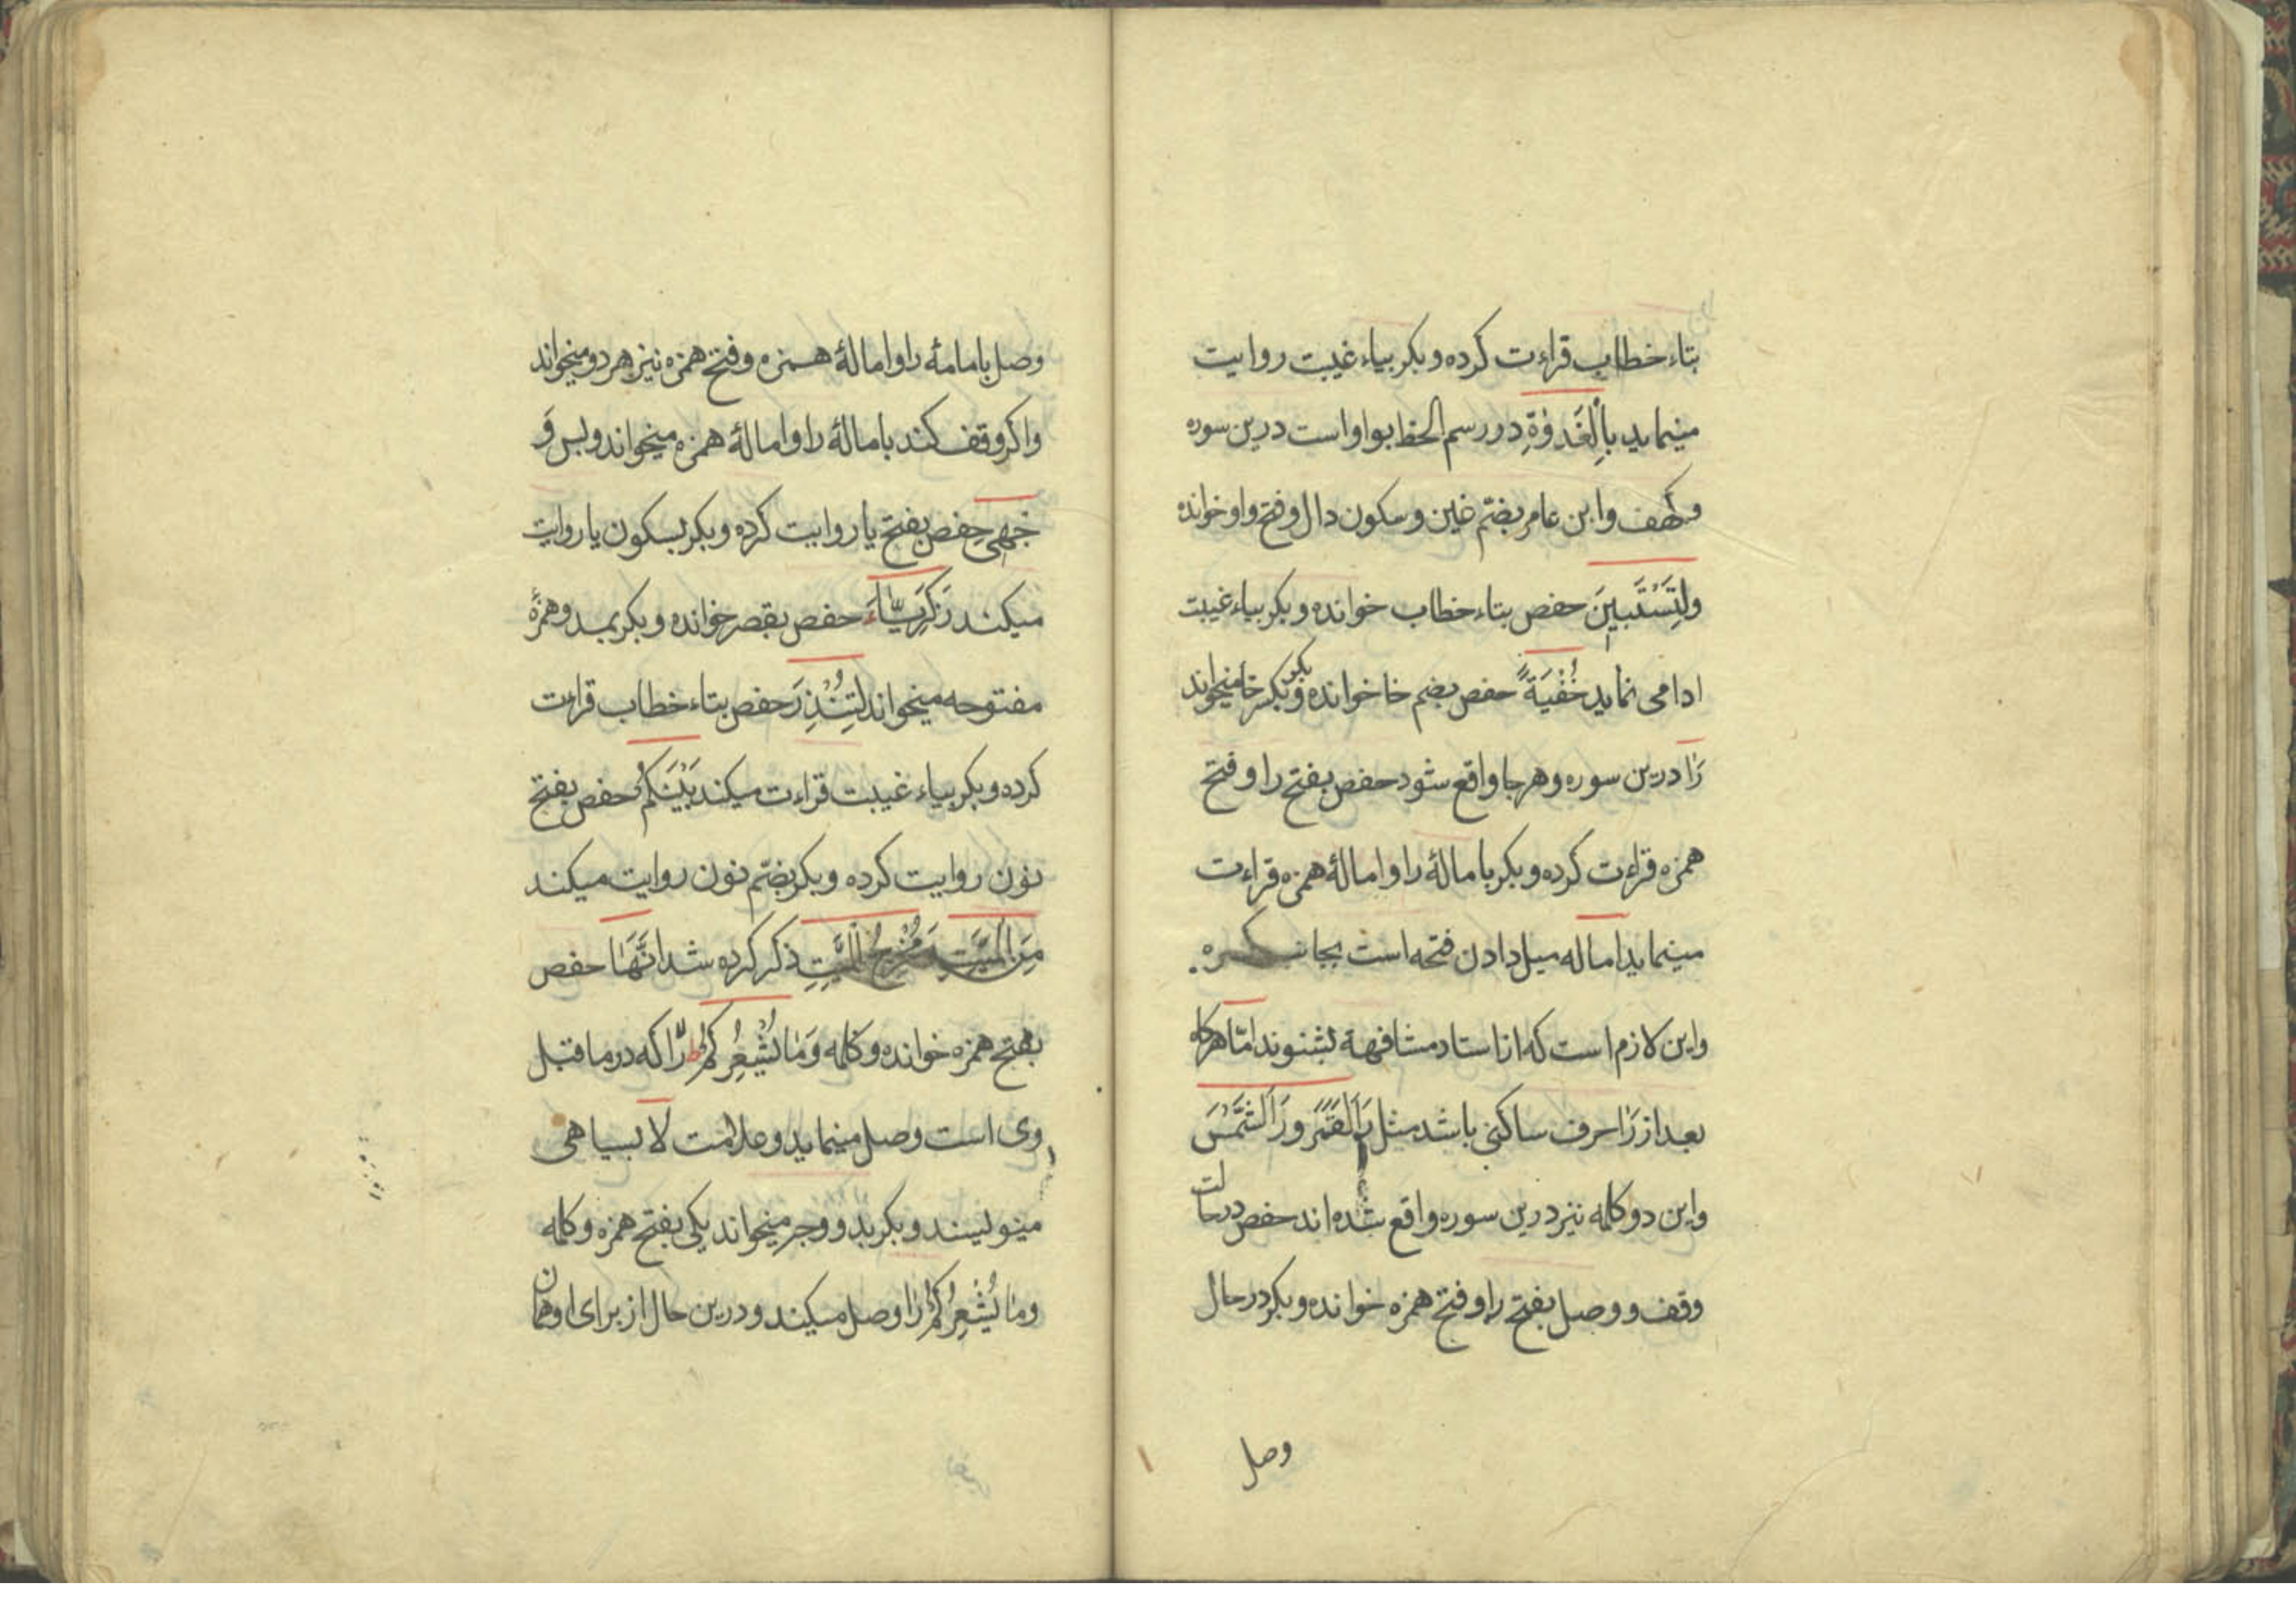 بتاء خطاب قراءت کرده و بکر بیاء غیبت روایت
مینماید بِالْغَدٰوةِ در رسم الخط بواو است درین سوره
و کهف و ابن عامر بضمّ غین و سکون دال و فتح واو خوانده
وَلِتَسْتَبِينَ حفص بتاء خطاب خوانده و بکر بیاء غیبت
ادا می نماید خُفْيَةً حفص بضم خا خوانده و بکر بکسر خا میخواند
رَاٰ درین سوره و هر جا واقع شود حفص بفتح را و فتح
همزه قراءت کرده و بکر بامالهٔ را و امالهٔ همزه قراءت
مینماید اماله میل دادن فتحه است بجانب کسره
و این لازم است که از استاد مشافهة بشنوند امّا هرگاه
بعد از رَاٰ حرف ساکنی باشد مثل رَاَالْقَمَرَ و رَاَالشَّمْسَ
و این دو کلمه نیز درین سوره واقع شده اند حفص در حالت
وقف و وصل بفتح را و فتح همزه خوانده و بکر در حال
وصل
وصل بامامهٔ را و امالهٔ همزه و فتح همزه نیز هر دو میخواند
و اکر وقف کند بامالهٔ را و امالهٔ همزه میخواند و بس وَ
جْهِيَ حفص بفتح یا روایت کرده و بکر بسکون یا روایت
میکند زَكَرِيَّاءَ حفص بقصر خوانده و بکر بمد و همزهٔ
مفتوحه میخواند لِتُنْذِرَ حفص بتاء خطاب قراءت
کرده و بکر بیاء غیبت قراءت میکند بَيْنَكُمْ حفص بفتح
نون روایت کرده و بکر بضمّ نون روایت میکند
مِنَ الْمَيِّتِ وَ مُخْرِجُ الْمَيِّتِ ذکر کرده شد اَنَّهَا حفص
بفتح همزه خوانده و کلمه وَمَا يُشْعِرُكُمْ را که در ما قبل
وی است وصل مینماید و علامت لا بسیاهی
مینویسند و بکر بدو وجه میخواند یکی بفتح همزه و کلمه
وما يُشْعِرُكُمْ را وصل میکند و درین حال از برای او همان